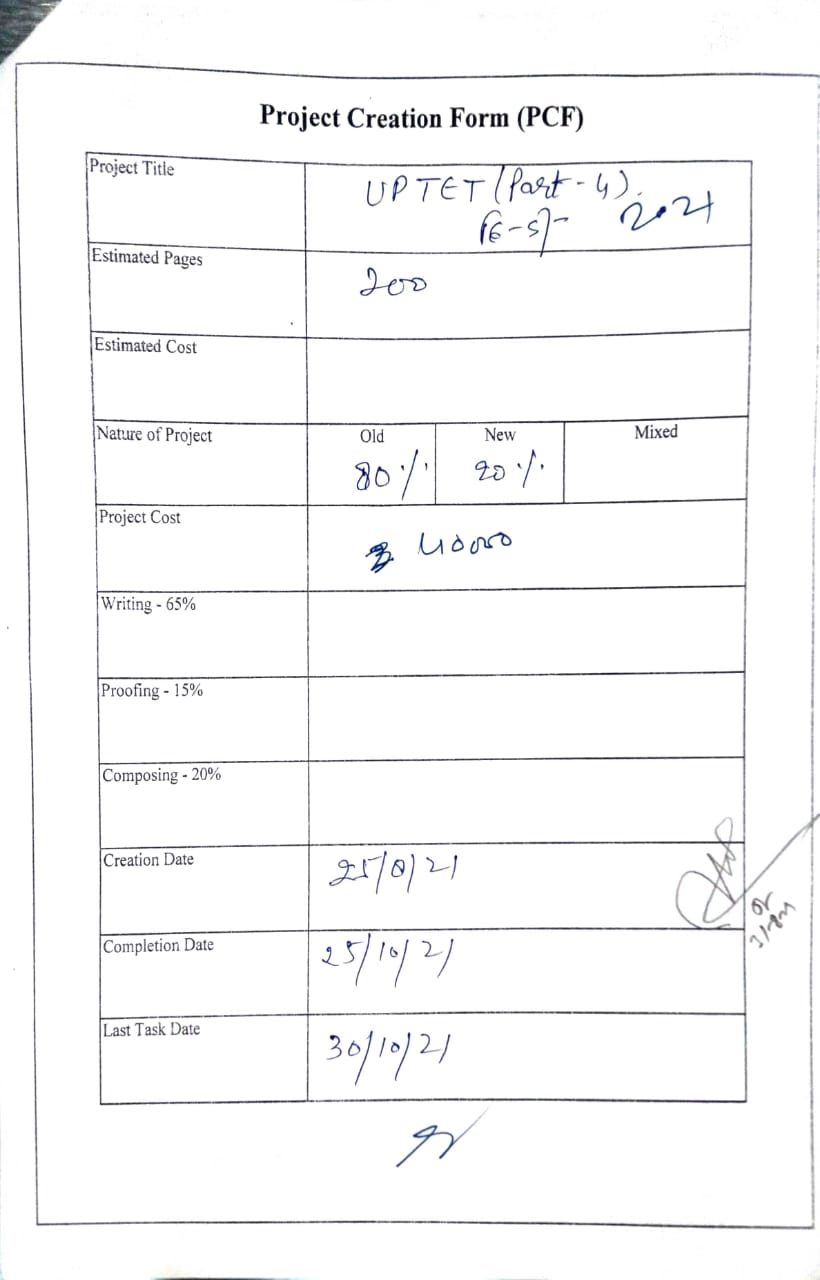 Project Creation Form (PCF)
Project Title
UPTET (Part - 4).
2021
Estimated Pages
200
Estimated Cost
Nature of Project
Old
New
Mixed
80%
20%
Project Cost
40000
Writing - 65%
Proofing - 15%
Composing - 20%
Creation Date
25/8/21
Completion Date
25/10/21
Last Task Date
30/10/21